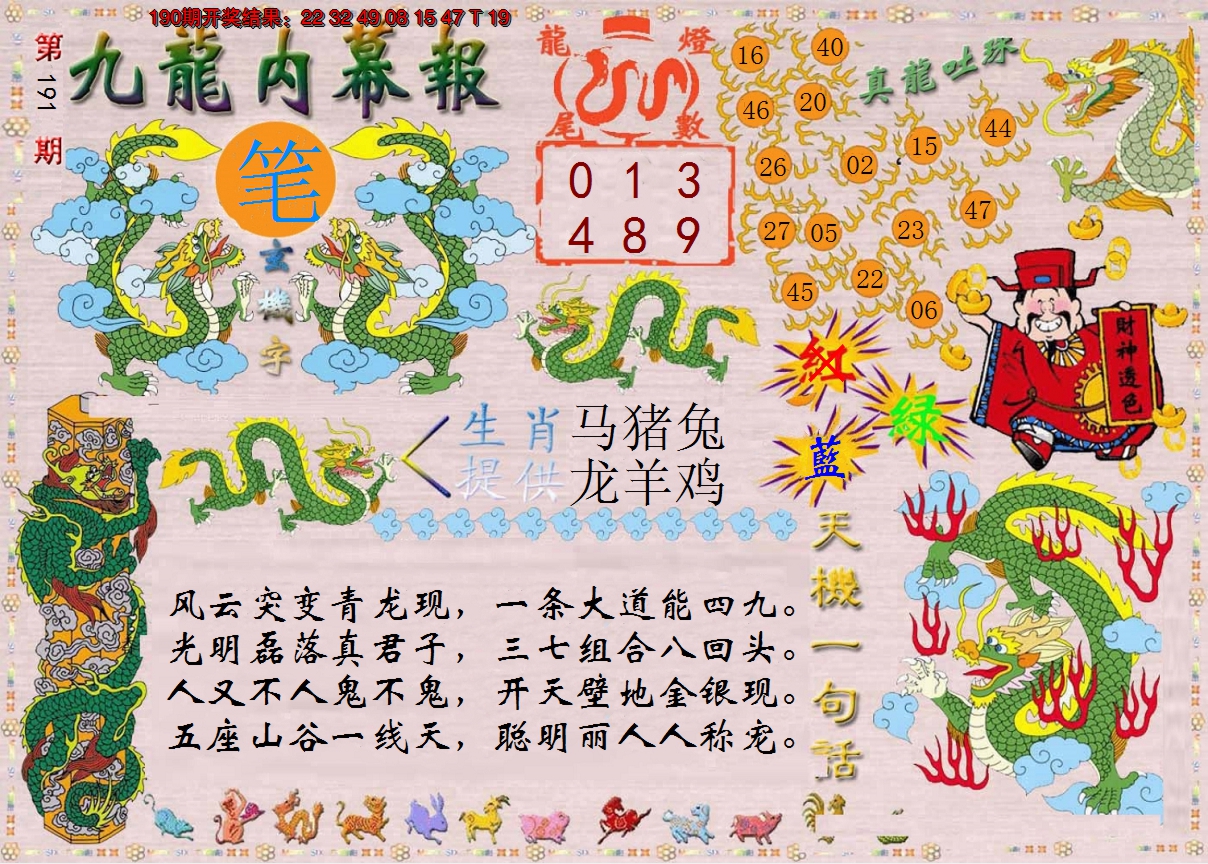 190期开奖结果：22 32 49 08 15 47 T 19
第191期
九龍内幕報
笔
玄機字
龍燈尾數
0 1 3
4 8 9
真龍吐珠
16 40
46 20
26 02 15 44
27 05 23 47
45 22 06
財神透色
紅
綠
藍
生肖 马猪兔
提供 龙羊鸡
天機一句話
风云突变青龙现，一条大道能四九。
光明磊落真君子，三七组合八回头。
人又不人鬼不鬼，开天壁地金银现。
五座山谷一线天，聪明丽人人称宠。